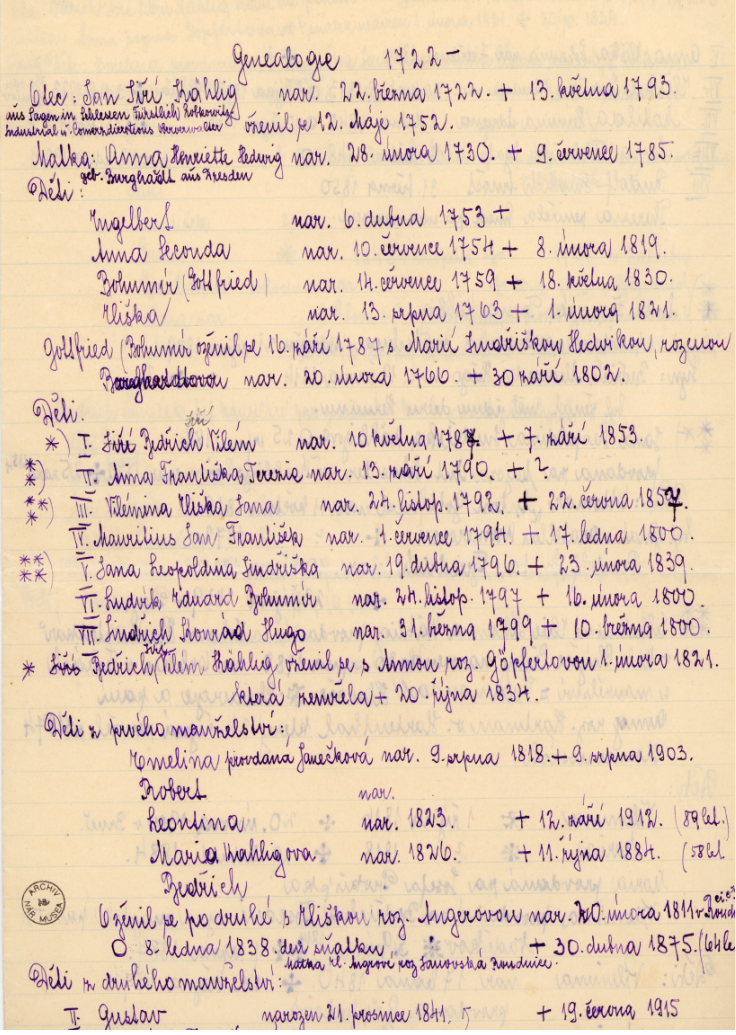 Genealogie 1722 –
Otec: Jan Jiří Kählig nar. 22. března 1722. + 13. května 1793.
aus Sagen in Schlesien Fürstlich
Industrial u. Comerzdirections oženil se 12. Máje 1752.
Matka: Anna Henriette Hedwig nar. 28. února 1730. + 9. července 1785.
geb. Burghardt aus Dresden
Děti:
Engelbert nar. 6. dubna 1753 +
Anna Seconda nar. 10. července 1754 + 8. února 1819.
Bohumír (Gottfried) nar. 14. července 1759 + 18. května 1830.
Eliška nar. 13. srpna 1763 + 1. února 1821.
Gottfried (Bohumír oženil se 16. září 1787 s Marií Jindřiškou Hedvikou, rozenou
nar. 20. února 1766. + 30 září 1802.
Děti.
Jiří
*) I. Jiří Bedřich Vilém nar. 10 května 1787 + 7. září 1853.
**) II. Anna Františka Terezie nar. 13. září 1790. + ?
***) III. Vilémina Eliška Jana nar. 24. listop. 1792. + 22. června 1857.
IV. Mauritius Jan František nar. 1. července 1794. + 17. ledna 1800.
****) V. Jana Leopoldina Jindřiška nar. 19. dubna 1796. + 23. února 1839.
VI. Ludvík Eduard Bohumír nar. 24. listop. 1797 + 16. února 1800
VII. Jindřich Konrád Hugo nar. 31. března 1799 + 10. března 1800.
* Jiří Bedřich Jiří Vilém Kählig oženil se s Annou roz. Göpfertovou 1. února 1821.
která zemřela + 20. října 1834.
Děti z prvého manželství:
Emelina provdaná Janečková nar. 9. srpna 1818. + 9. srpna 1903.
Robert nar.
Leontina nar. 1823. + 12. září 1912. (89 let.)
Maria Kahligova nar. 1826. + 11. října 1884. (58 let
Bedřich
Oženil se po druhé s Eliškou roz. Angerovou nar. 20. února 1811 v
O 8. ledna 1838 den sňatku, + 30. dubna 1875. (64 le
matka El. Angrové roz Janovská
Děti z druhého manželství:
II. Gustav narozen 21. prosince 1841. + 19. června 1915
ARCHIV NÁR. MUSEA